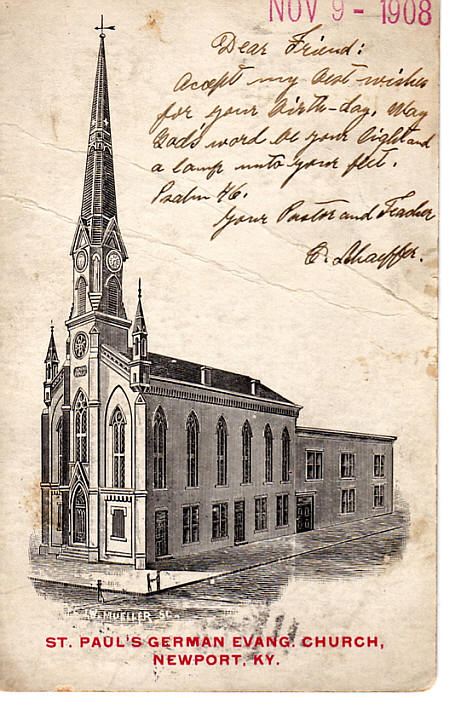 NOV 9 - 1908
Dear Friend:
Accept my best wishes
for your birth-day. May
Gods word be your light and
a lamp unto your feet.
Psalm 46.
Your Pastor and Teacher
O. Schaeffer.
MUELLER SC.
ST. PAUL'S GERMAN EVANG. CHURCH,
NEWPORT, KY.